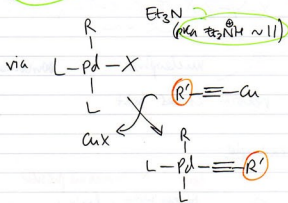 Et₃N
(pka Et₃N⊕H ~ 11)
R
via L-Pd-X
L
R'-≡-Cu
CuX
R
L-Pd-≡-R'
L